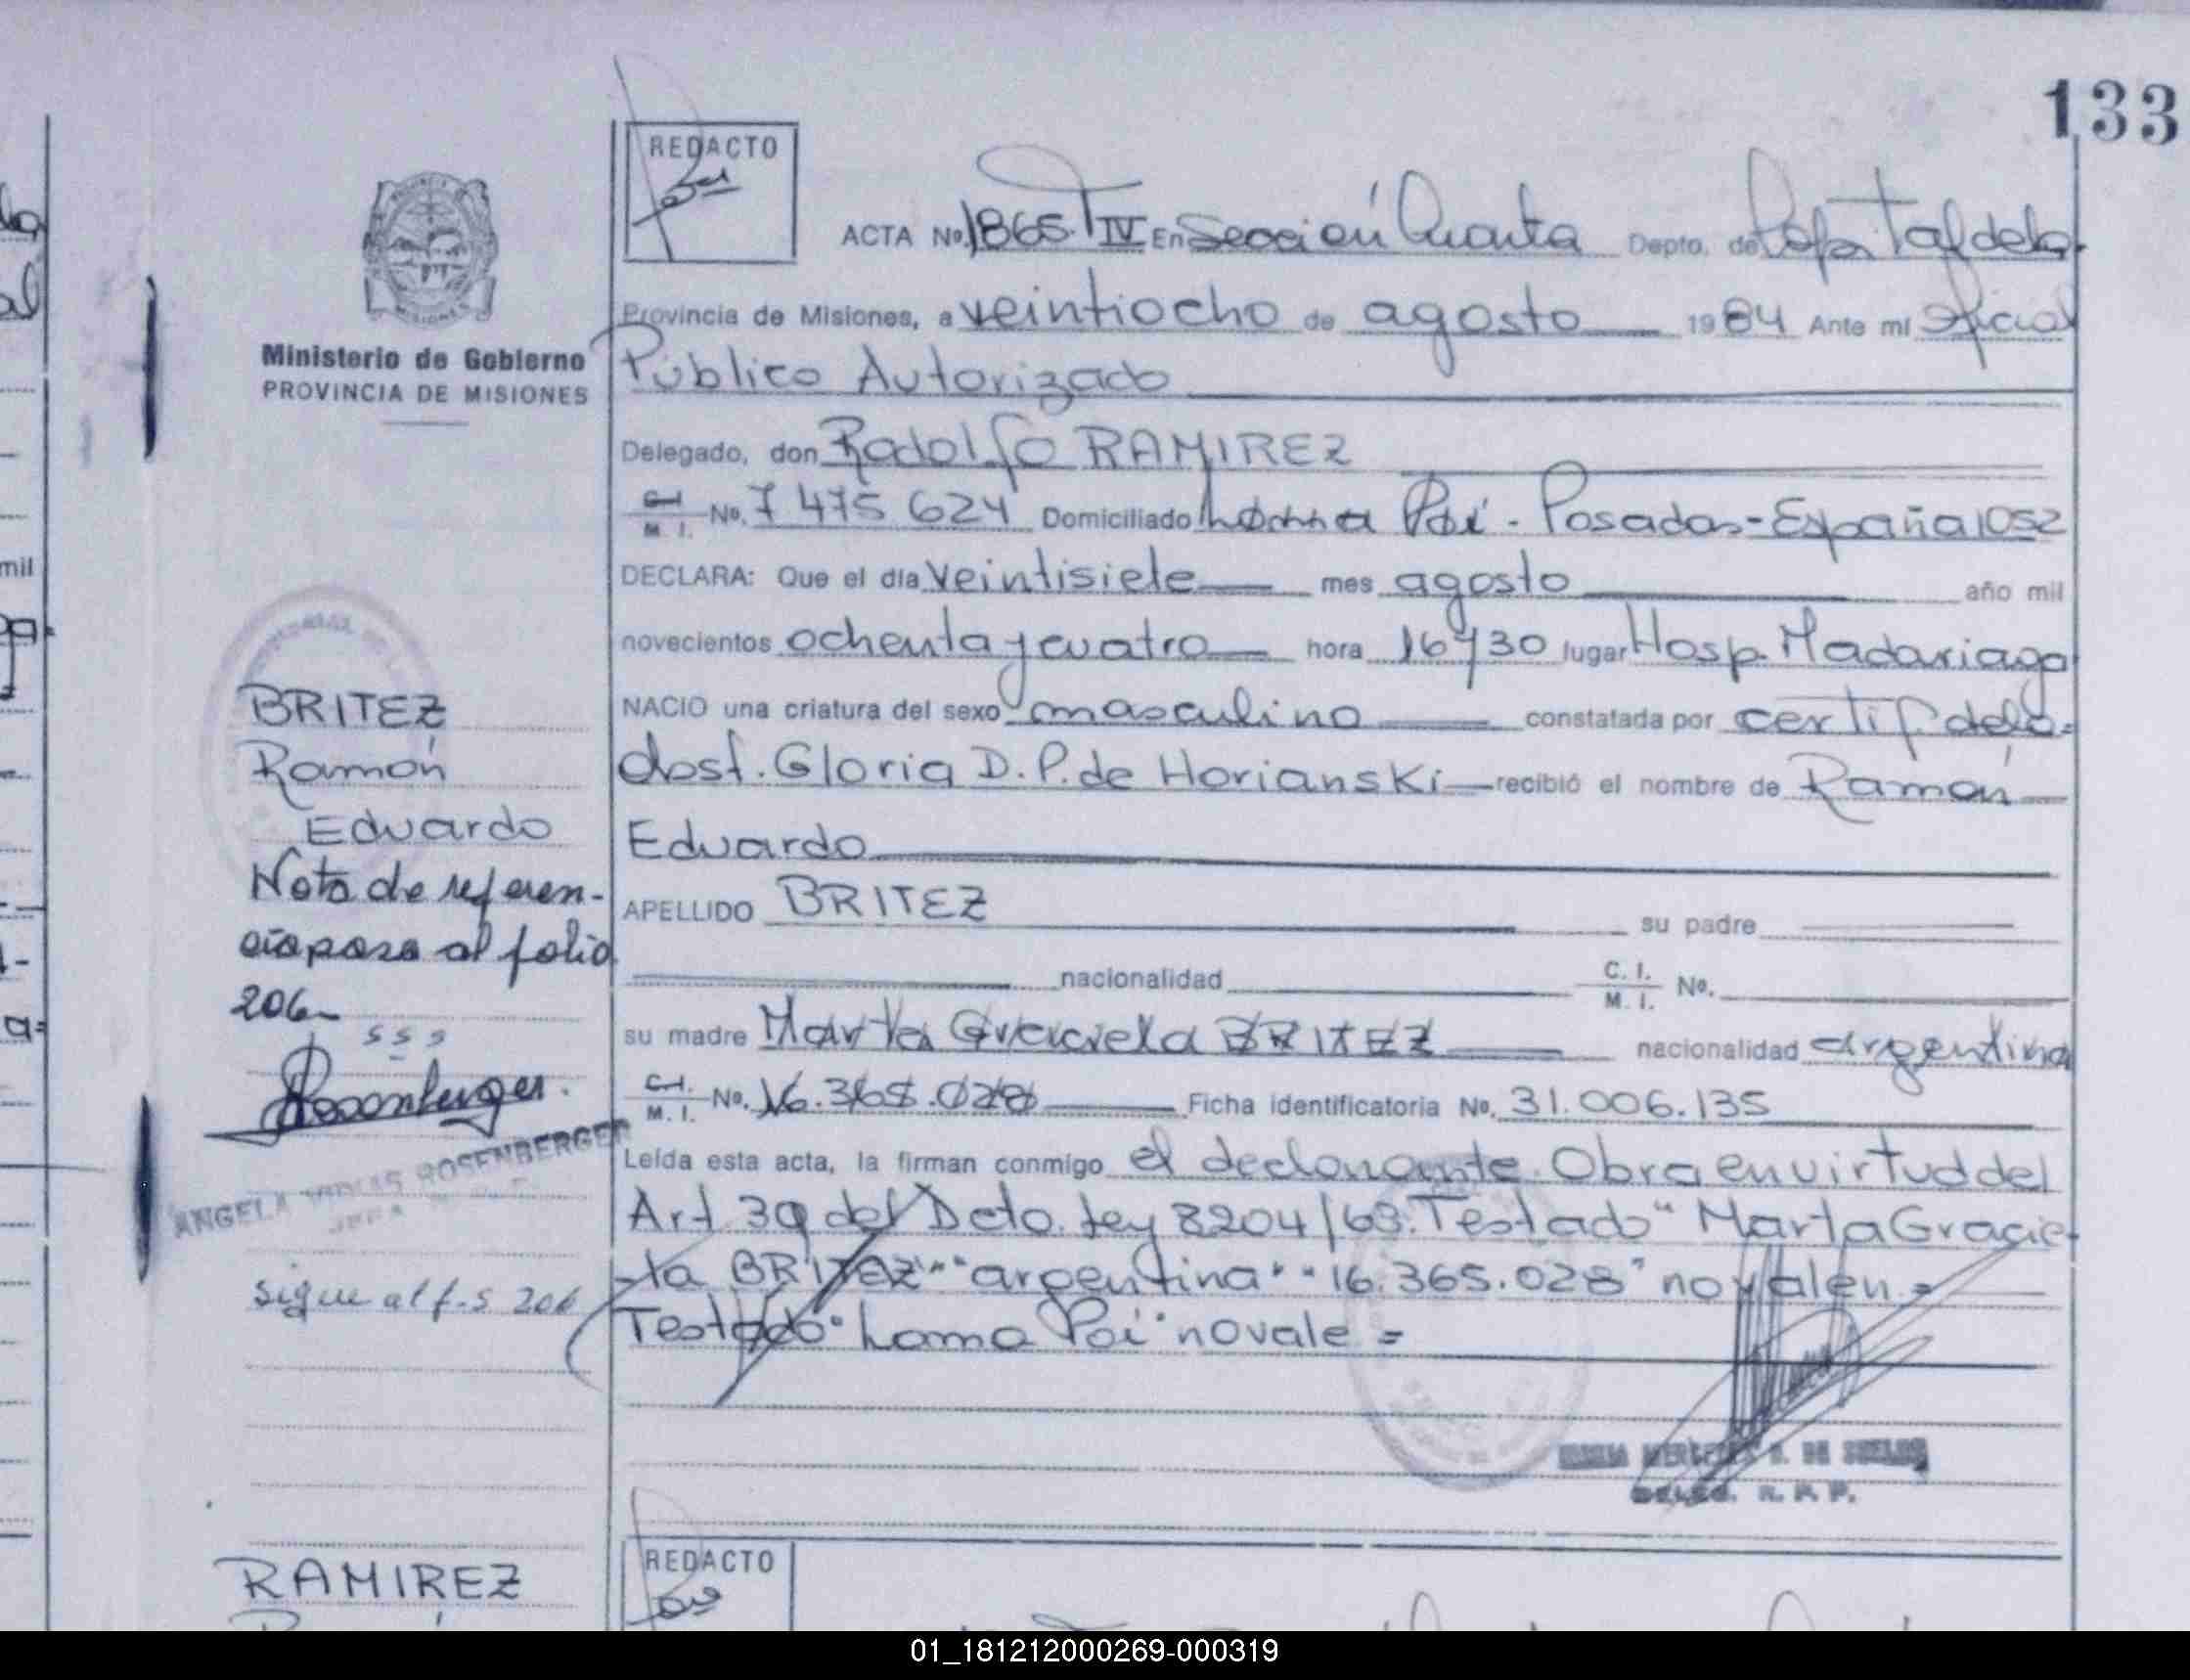 133
REDACTO
ACTA Nº 1865 T IV En Sección Cuarta Depto. de Cap Taf dela
Provincia de Misiones, a veintiocho de agosto 1984 Ante mí Oficial
Público Autorizado
Ministerio de Gobierno
PROVINCIA DE MISIONES
Delegado, don Rodolfo RAMIREZ
C.I. M. I. Nº. 7 475 624 Domiciliado Loma Poi - Posadas - España 1052
DECLARA: Que el día Veintisiete mes agosto año mil
novecientos ochenta y cuatro hora 16y30 lugar Hosp. Madariaga
NACIO una criatura del sexo masculino constatada por certif. dela
obst. Gloria D. P. de Horianski recibió el nombre de Ramón
Eduardo
APELLIDO BRITEZ su padre
nacionalidad C. I. M. I. Nº.
su madre Marta Graciela BRITEZ nacionalidad argentina
C.I. M. I. Nº. 16.365.028 Ficha identificatoria Nº. 31.006.135
Leída esta acta, la firman conmigo el declarante. Obra en virtud del
Art 39 del Dcto. Ley 8204/63. Testado "Marta Gracie-
-la BRITEZ" "argentina" "16.365.028" no valen =
Testado "Loma Poi" no vale =
BRITEZ
Ramón
Eduardo
Nota de referen-
cia pasa al folio
206
Rosenberger
ANGELA ROSENBERGER
JEFA
sigue al f-s 206
MERCEDES DE
DELEG. R. P. P.
RAMIREZ
REDACTO
01_181212000269-000319